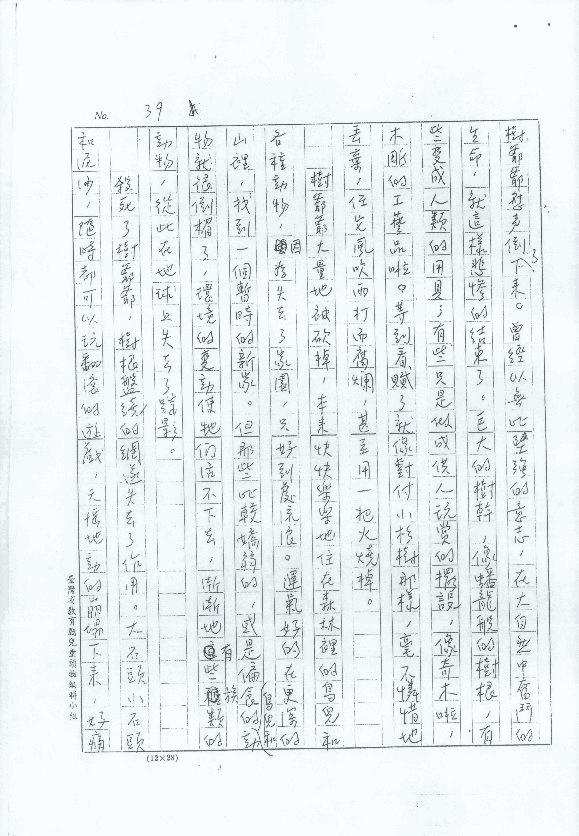 No. 39
樹爺爺應聲倒了下來。曾經以無比堅強的意志,在大自然中奮鬥的
生命,就這樣悲慘的結束了。巨大的樹幹,像蟠龍般的樹根,有
些變成人類的用具;有些只是做成供人玩賞的擺設,像奇木啦,
木雕的工藝品啦。等到看膩了就像對付小松樹那樣,毫不憐惜地
丟棄,任它風吹雨打而腐爛,甚至用一把火燒掉。
樹爺爺大量地被砍掉,本來快快樂樂地住在森林裡的鳥兒和
各種動物,因為失去了家園,只好到處流浪。運氣好的在更深的
山裡,找到一個暫時的新家。但那些比較嬌弱的,或是偏食的鳥兒和動
物就很倒楣了,環境的變動使牠們活不下去,漸漸地有些種族類的
動物,從此在地球上失去了蹤影。
殺死了樹爺爺,樹根盤繞的網遂失去了作用。大石頭小石頭
和泥沙,隨時都可以玩翻滾的遊戲,天搖地動的崩塌下來,好痛
臺灣省教育廳兒童讀物編輯小組
(12×28)